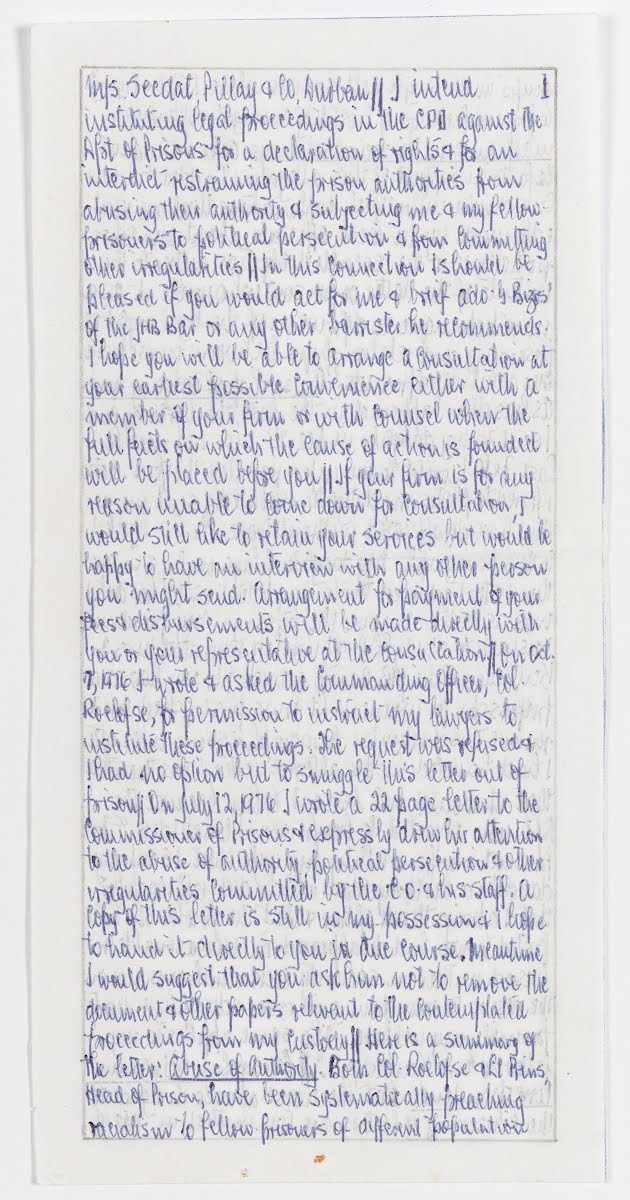 M/s Seedat, Pillay & Co, Durban // I intend 1
instituting legal proceedings in the CPD against the
Dpt of Prisons for a declaration of rights & for an
interdict restraining the prison authorities from
abusing their authority & subjecting me & my fellow-
prisoners to political persecution & from committing
other irregularities // In this connection I should be
pleased if you would act for me & brief adv. G Bizos
of the JHB Bar or any other barrister he recommends.
I hope you will be able to arrange a consultation at
your earliest possible convenience either with a
member of your firm or with counsel when the
full facts on which the cause of action is founded
will be placed before you // If your firm is for any
reason unable to come down for consultation, I
would still like to retain your services but would be
happy to have an interview with any other person
you might send. Arrangement for payment of your
fees & disbursements will be made directly with
you or your representative at the consultation // On Oct.
7, 1976 I wrote & asked the Commanding Officer, Col.
Roelofse, for permission to instruct my lawyers to
institute these proceedings. The request was refused &
I had no option but to smuggle this letter out of
prison // On July 12, 1976 I wrote a 22 page letter to the
Commissioner of Prisons & expressly drew his attention
to the abuse of authority, political persecution & other
irregularities committed by the C.O. & his staff. A
copy of this letter is still in my possession & I hope
to hand it directly to you in due course. Meantime
I would suggest that you ask him not to remove the
document & other papers relevant to the contemplated
proceedings from my custody // Here is a summary of
the letter: Abuse of Authority. Both Col. Roelofse & Lt Prins,
Head of Prison, have been systematically preaching
racialism to fellow prisoners of different population